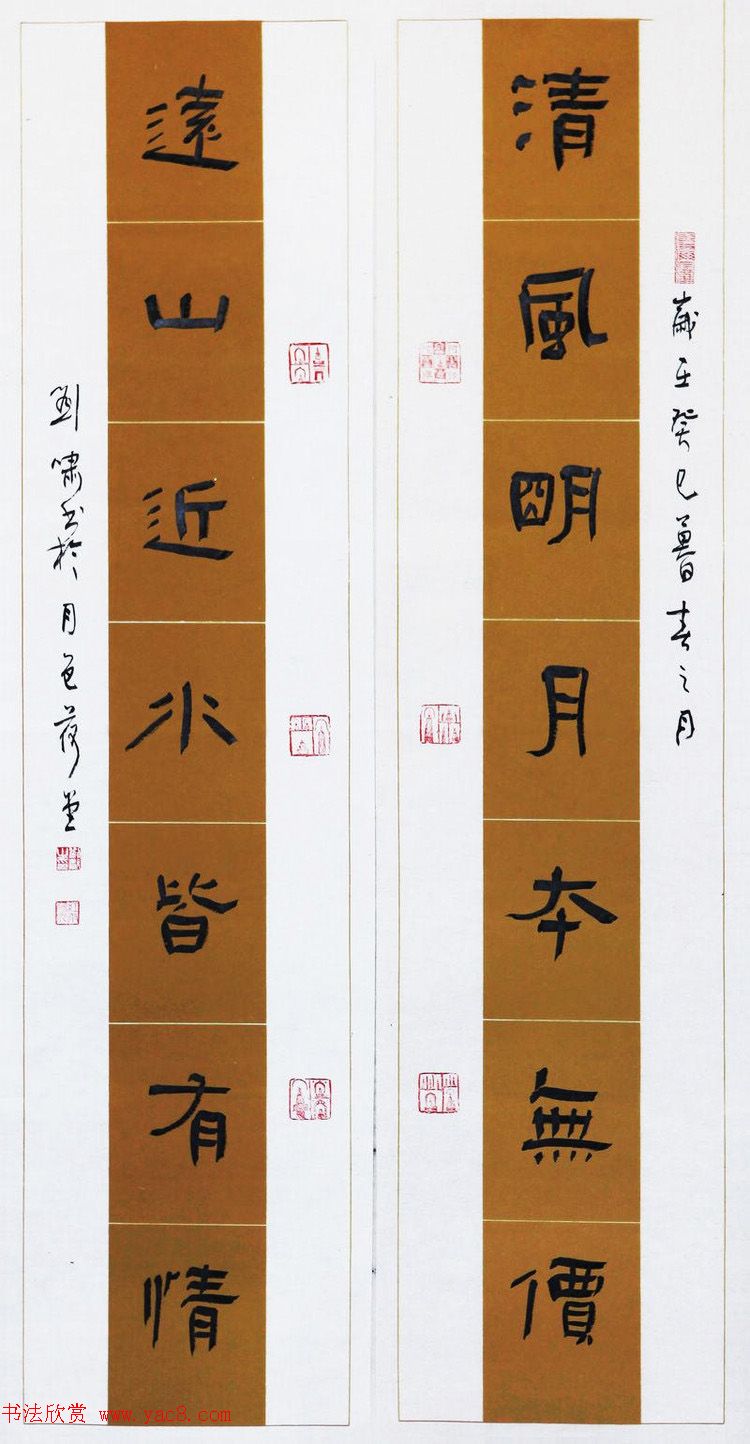 歲在癸巳暮春之月
清風明月本無價
遠山近水皆有情
劉嘯書於月色荷堂
书法欣赏 www.yac8.com